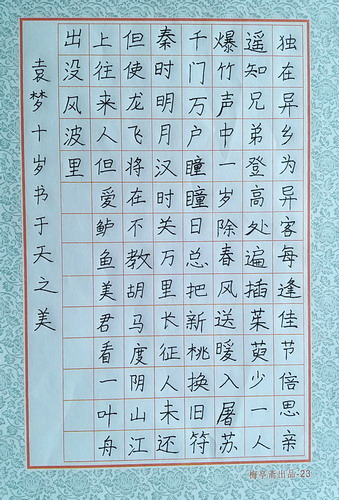 独在异乡为异客每逢佳节倍思亲
遥知兄弟登高处遍插茱萸少一人
爆竹声中一岁除春风送暖入屠苏
千门万户瞳瞳日总把新桃换旧符
秦时明月汉时关万里长征人未还
但使龙飞将在不教胡马度阴山江
上往来人但爱鲈鱼美君看一叶舟
出没风波里
袁梦十岁书于天之美
梅亭斋出品-23